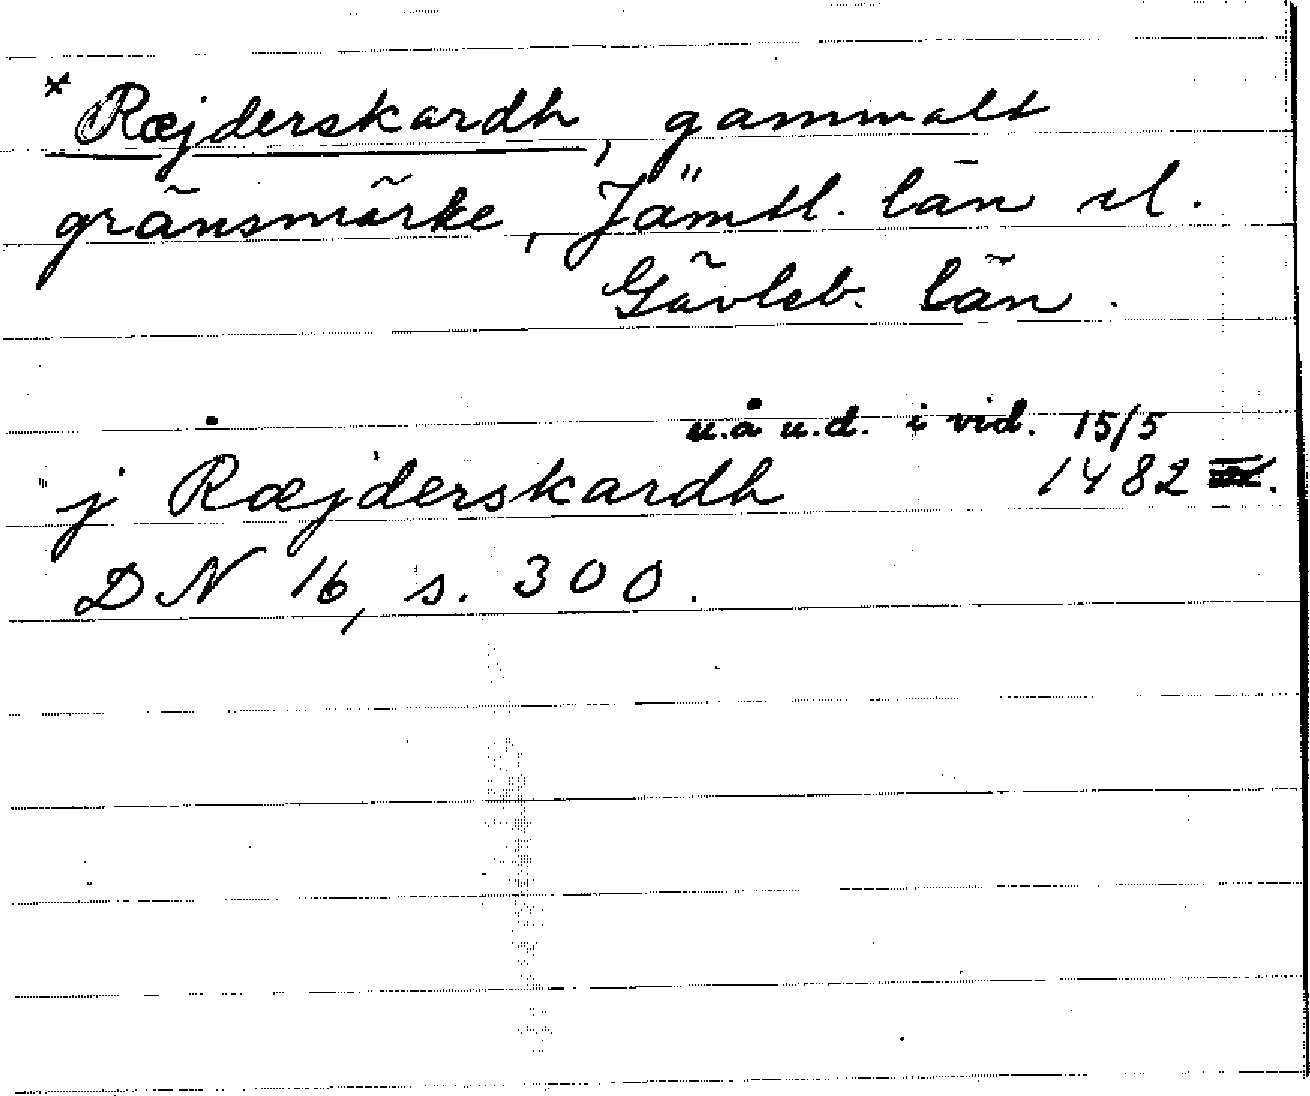 * Ræjderskardh, gammalt
gränsmärke, Jämtl. län el.
Gävleb. län.
u.å u.d. i vid. 15/5
j Ræjderskardh 1482
DN 16, s. 300.